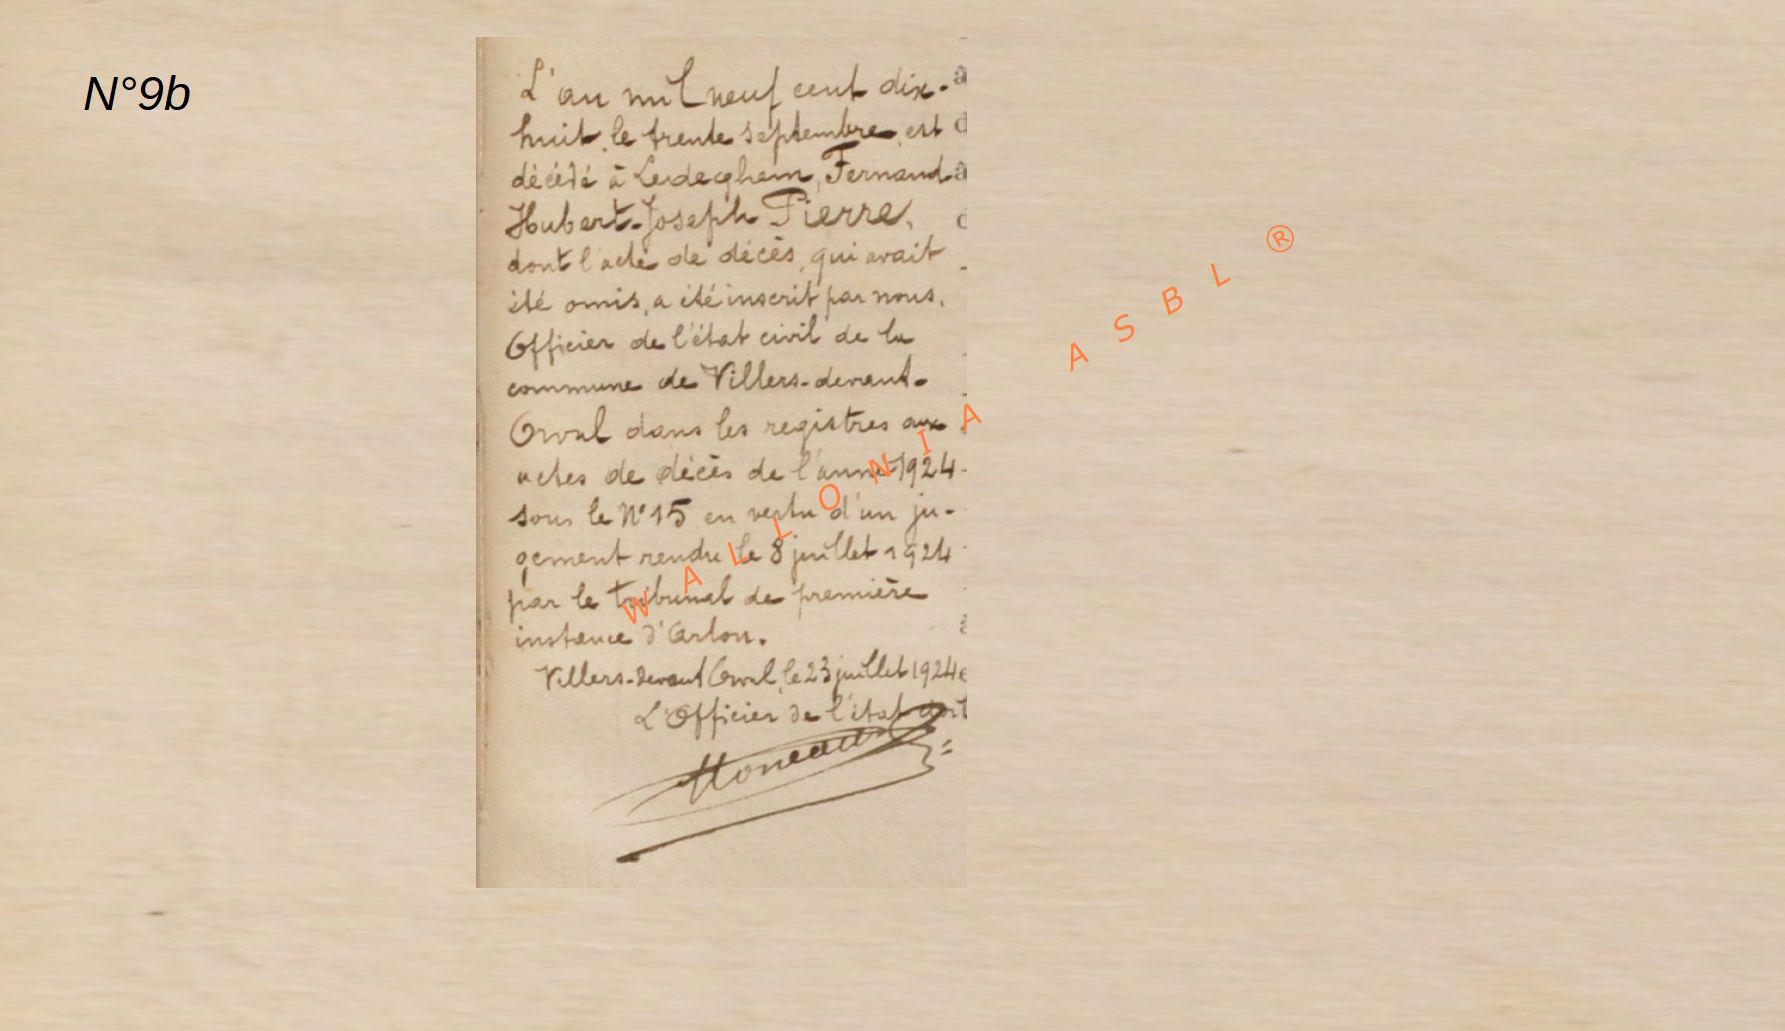 N°9b
L'an mil neuf cent dix-
huit, le trente septembre, est
décédé à Ledeghem, Fernand
Hubert-Joseph Pierre,
dont l'acte de décès, qui avait
été omis, a été inscrit par nous,
Officier de l'état civil de la
commune de Villers-devant-
Orval dans les registres aux
actes de décès de l'année 1924
sous le N° 15 en vertu d'un ju-
gement rendu le 8 juillet 1924
par le tribunal de première
instance d'Arlon.
Villers-devant Orval, le 23 juillet 1924
L'Officier de l'état
WALLONIA ASBL ®